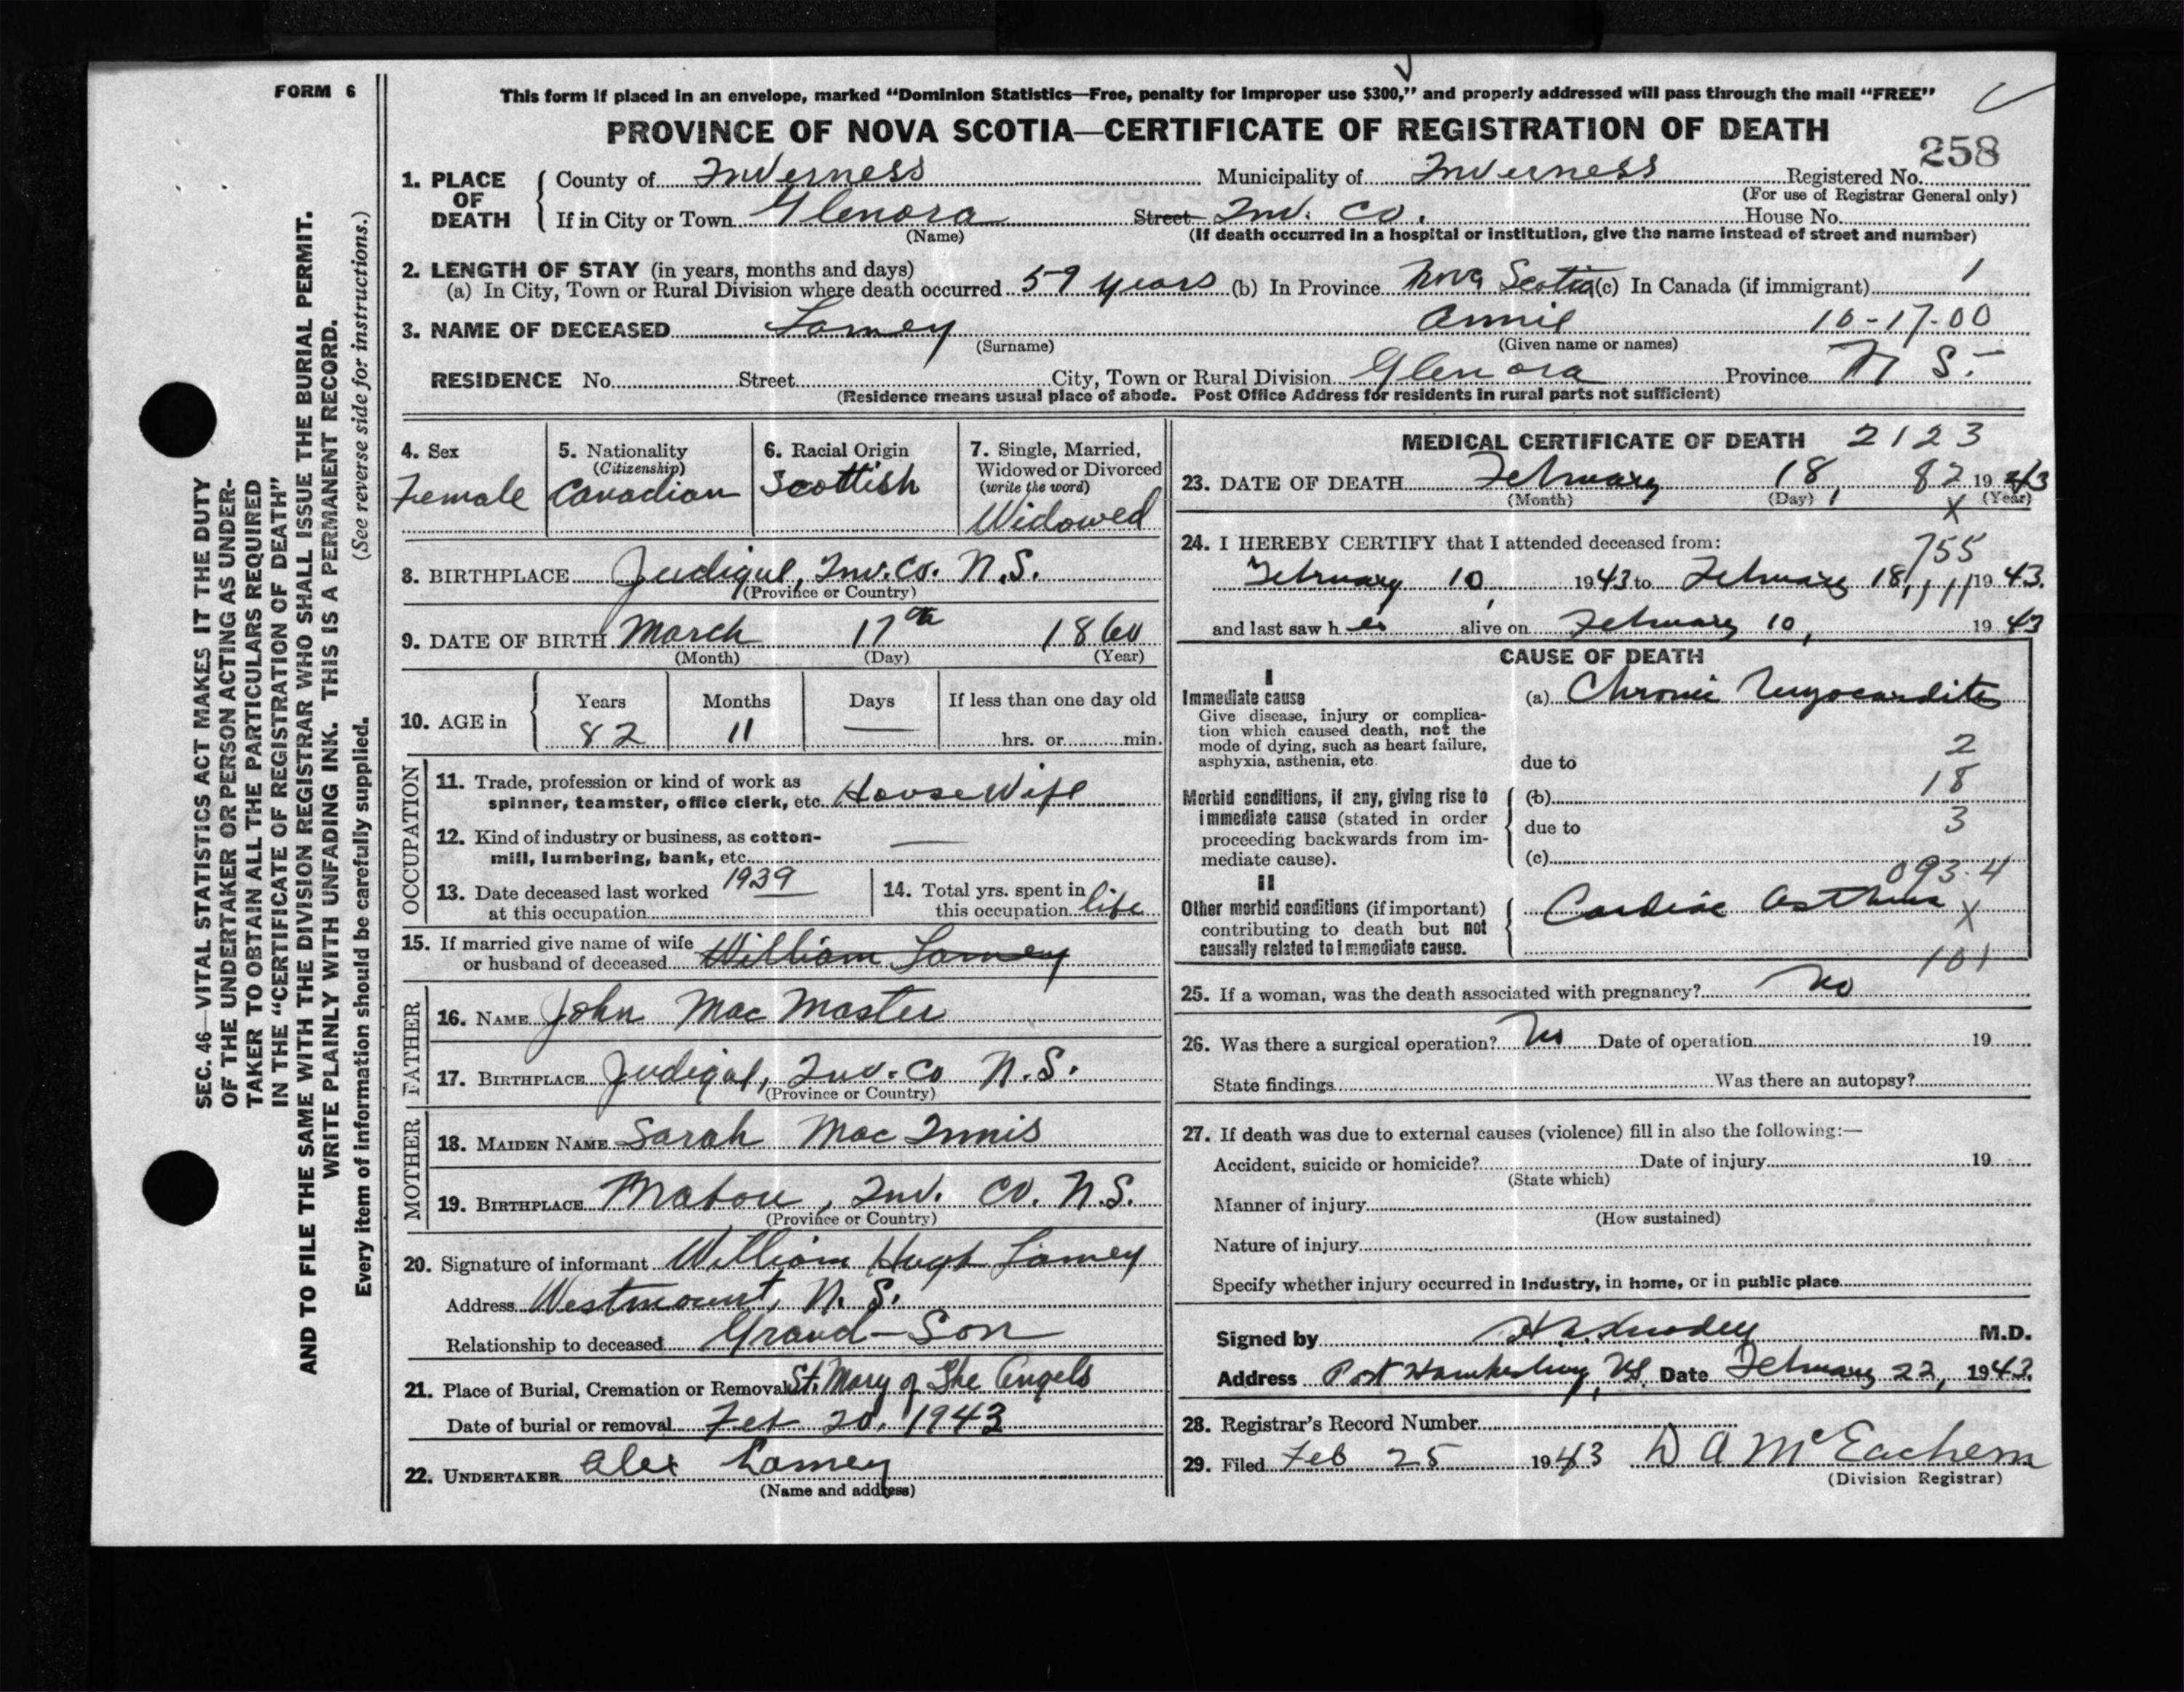 FORM 6
This form if placed in an envelope, marked "Dominion Statistics—Free, penalty for improper use $300," and properly addressed will pass through the mail "FREE"
PROVINCE OF NOVA SCOTIA—CERTIFICATE OF REGISTRATION OF DEATH
258
1. PLACE OF DEATH
County of Inverness Municipality of Inverness Registered No.
(For use of Registrar General only)
If in City or Town Glenora Street Inv. Co. House No.
(Name) (If death occurred in a hospital or institution, give the name instead of street and number)
2. LENGTH OF STAY (in years, months and days)
(a) In City, Town or Rural Division where death occurred 59 years (b) In Province Nova Scotia (c) In Canada (if immigrant) 1
3. NAME OF DECEASED Lamey Annie 10-17-00
(Surname) (Given name or names)
RESIDENCE No. Street City, Town or Rural Division Glenora Province N S.
(Residence means usual place of abode. Post Office Address for residents in rural parts not sufficient)
4. Sex
Female
5. Nationality
(Citizenship)
Canadian
6. Racial Origin
Scottish
7. Single, Married, Widowed or Divorced
(write the word)
Widowed
8. BIRTHPLACE Judique, Inv. Co. N.S.
(Province or Country)
9. DATE OF BIRTH March 17th 1860
(Month) (Day) (Year)
10. AGE in
Years Months Days If less than one day old
82 11 — hrs. or min.
OCCUPATION
11. Trade, profession or kind of work as
spinner, teamster, office clerk, etc. House Wife
12. Kind of industry or business, as cotton-
mill, lumbering, bank, etc. —
13. Date deceased last worked 1939
at this occupation
14. Total yrs. spent in
this occupation life
15. If married give name of wife
or husband of deceased William Lamey
FATHER
16. NAME John Mac Master
17. BIRTHPLACE Judique, Inv. Co N.S.
(Province or Country)
MOTHER
18. MAIDEN NAME Sarah Mac Innis
19. BIRTHPLACE Mabou, Inv. Co. N.S.
(Province or Country)
20. Signature of informant William Hugh Lamey
Address Westmount, N. S.
Relationship to deceased Grand-Son
21. Place of Burial, Cremation or Removal St. Mary of The Angels
Date of burial or removal Feb 20, 1943
22. UNDERTAKER Alex Lamey
(Name and address)
MEDICAL CERTIFICATE OF DEATH 2123
23. DATE OF DEATH February 18, 82 1943
(Month) (Day) X (Year)
24. I HEREBY CERTIFY that I attended deceased from:
755
February 10, 1943 to February 18, 1943.
and last saw her alive on February 10, 1943
CAUSE OF DEATH
I
Immediate cause
Give disease, injury or complica-
tion which caused death, not the
mode of dying, such as heart failure,
asphyxia, asthenia, etc.
(a) Chronic Myocarditis
due to 2
18
Morbid conditions, if any, giving rise to
immediate cause (stated in order
proceeding backwards from im-
mediate cause).
(b)
due to 3
(c)
093.4
II
Other morbid conditions (if important)
contributing to death but not
causally related to immediate cause.
Cardiac Asthma X
101
25. If a woman, was the death associated with pregnancy? No
26. Was there a surgical operation? No Date of operation 19
State findings Was there an autopsy?
27. If death was due to external causes (violence) fill in also the following:—
Accident, suicide or homicide? Date of injury 19
(State which)
Manner of injury
(How sustained)
Nature of injury
Specify whether injury occurred in industry, in home, or in public place
Signed by M.D.
Address Port Hawkesbury, NS. Date February 22, 1943.
28. Registrar's Record Number
29. Filed Feb 25 1943 D A McEachern
(Division Registrar)
SEC. 46—VITAL STATISTICS ACT MAKES IT THE DUTY
OF THE UNDERTAKER OR PERSON ACTING AS UNDER-
TAKER TO OBTAIN ALL THE PARTICULARS REQUIRED
IN THE "CERTIFICATE OF REGISTRATION OF DEATH"
AND TO FILE THE SAME WITH THE DIVISION REGISTRAR WHO SHALL ISSUE THE BURIAL PERMIT.
WRITE PLAINLY WITH UNFADING INK. THIS IS A PERMANENT RECORD.
Every item of information should be carefully supplied. (See reverse side for instructions.)